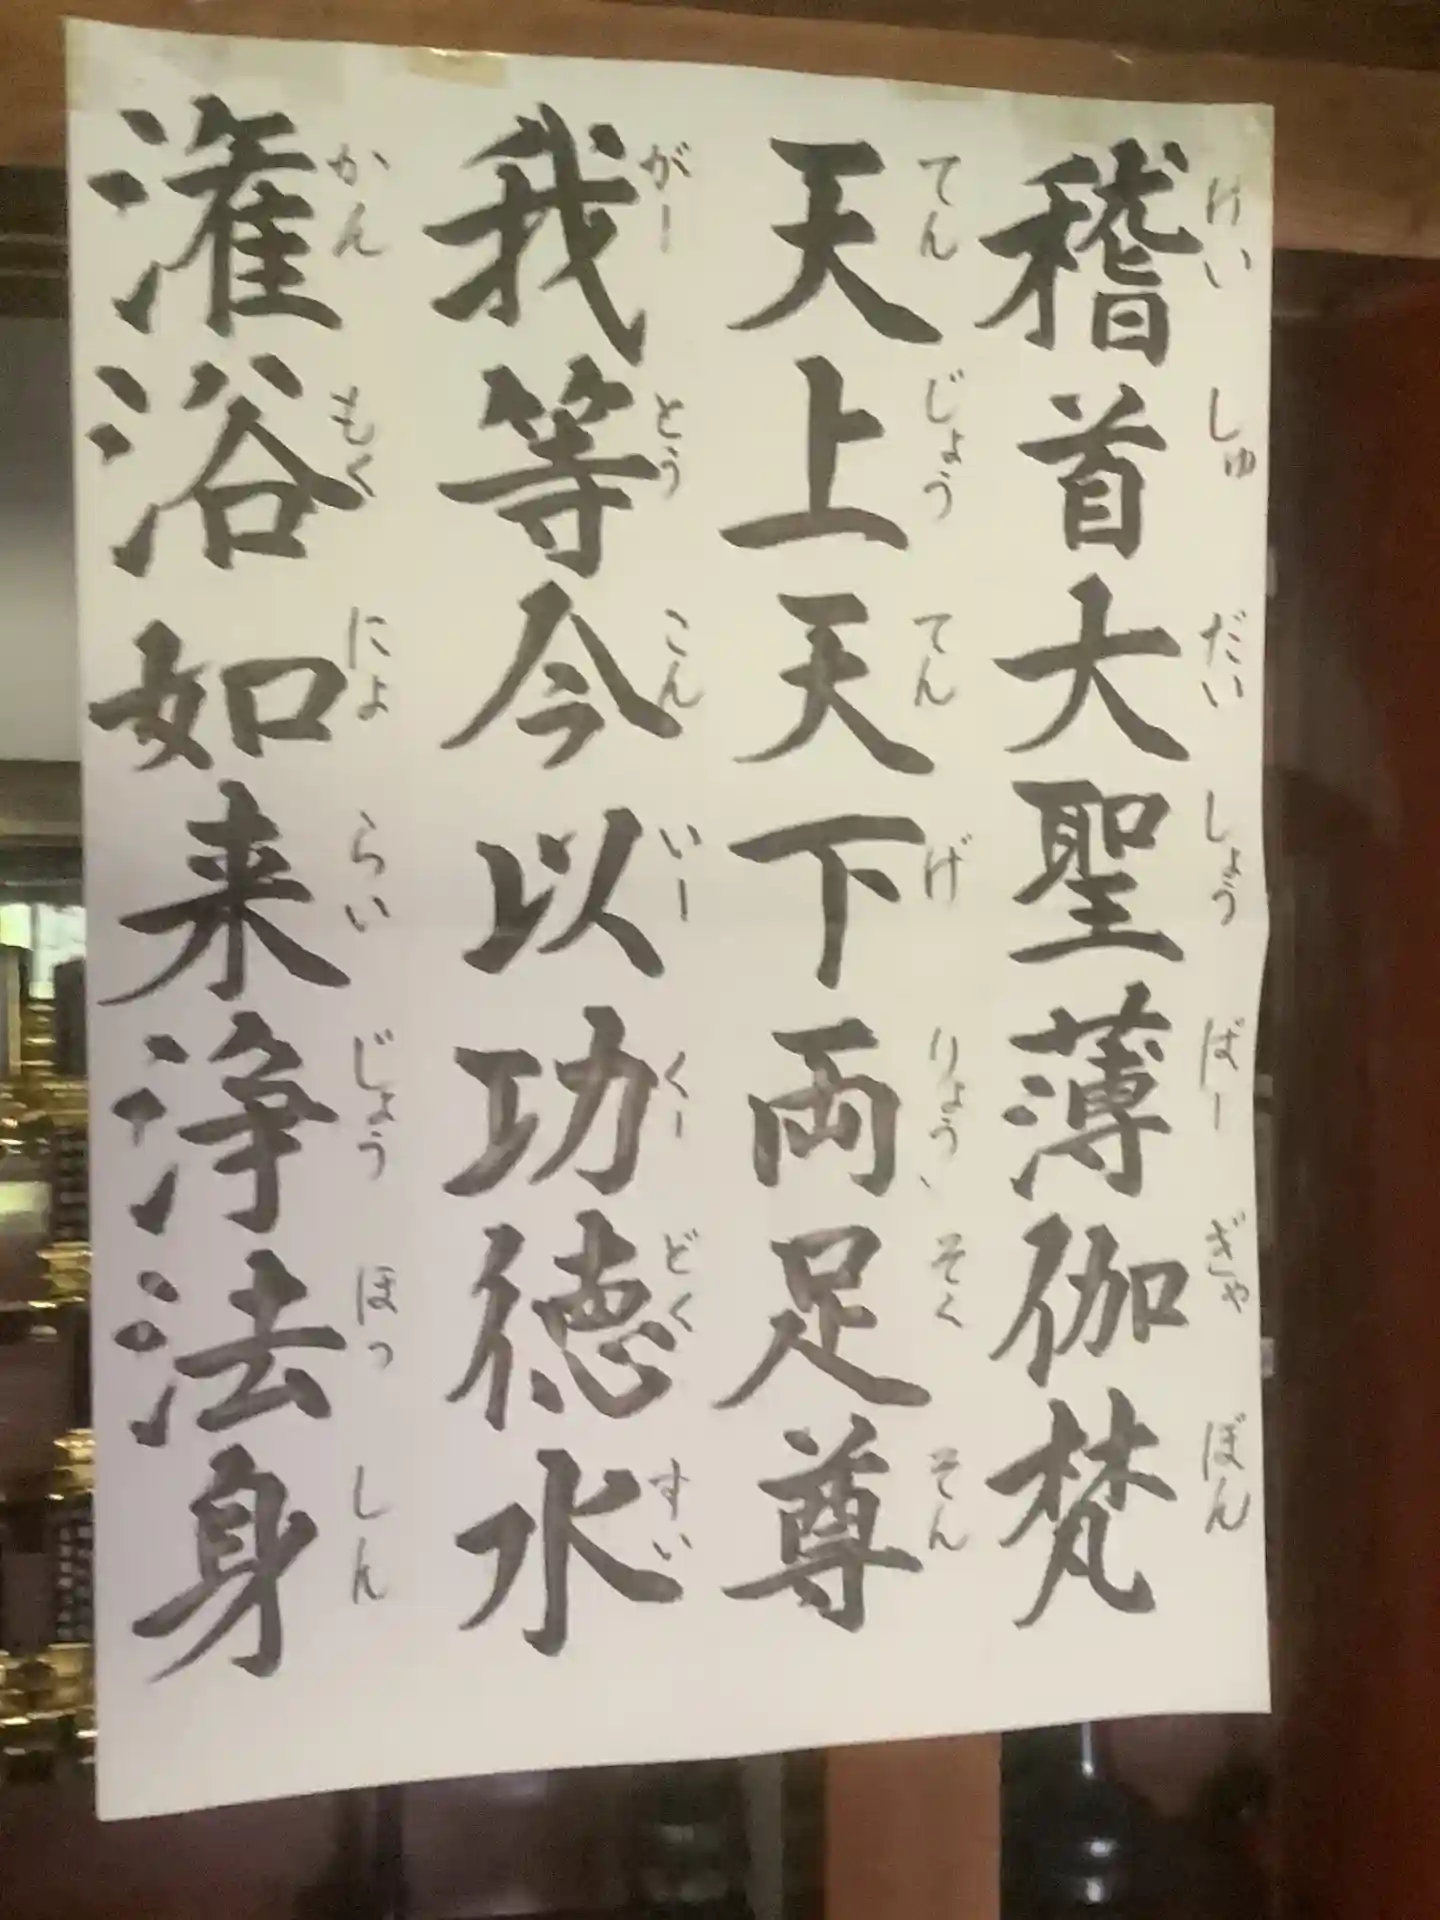 稽首大聖薄伽梵
けいしゅだいしょうばーぎゃぼん
天上天下両足尊
てんじょうてんげりょうそくそん
我等今以功徳水
がーとうこんいーくーどくすい
潅浴如来浄法身
かんもくにょらいじょうほっしん